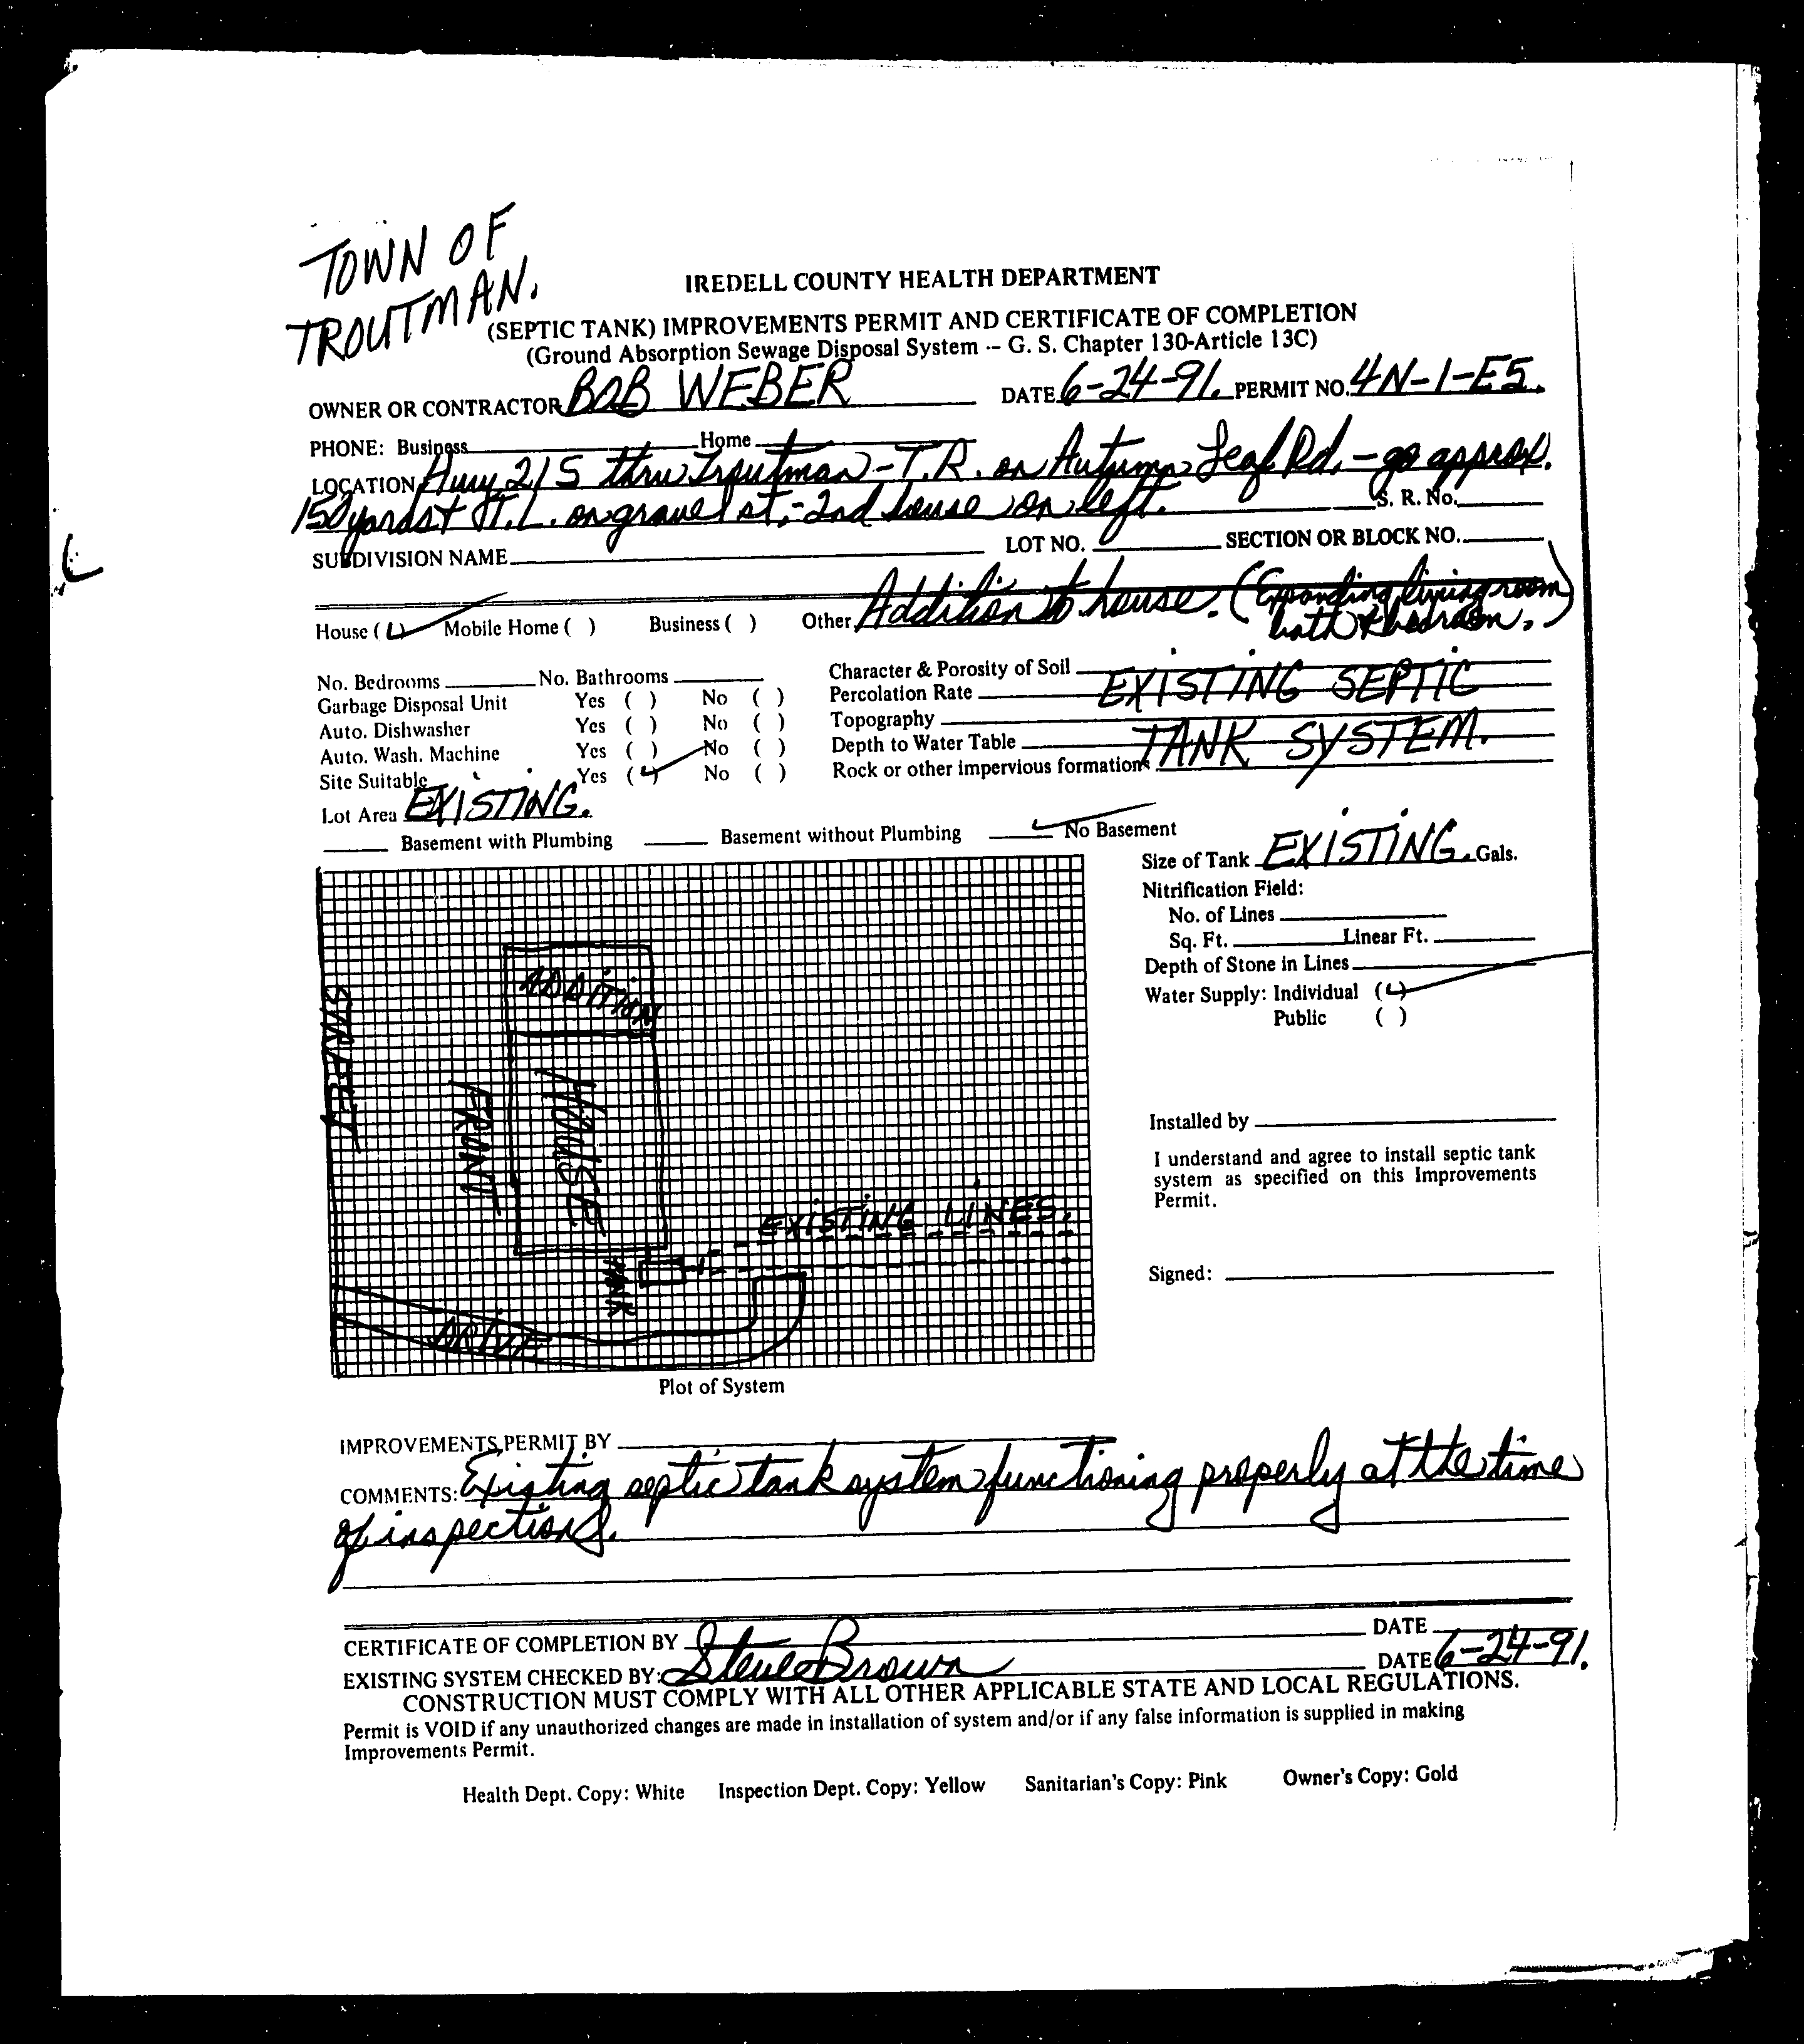 TOWN OF
TROUTMAN.
IREDELL COUNTY HEALTH DEPARTMENT
(SEPTIC TANK) IMPROVEMENTS PERMIT AND CERTIFICATE OF COMPLETION
(Ground Absorption Sewage Disposal System -- G. S. Chapter 130-Article 13C)
OWNER OR CONTRACTOR BOB WEBER DATE 6-24-91. PERMIT NO. 4N-1-E5.
PHONE: Business Home
LOCATION Hwy 21 S thru Troutman - T.R. on Autumn Leaf Rd. - go approx.
150 yards & T.L. on gravel st. - 2nd house on left. S. R. No.
SUBDIVISION NAME LOT NO. SECTION OR BLOCK NO.
House ( ) Mobile Home ( ) Business ( ) Other Addition to house. (Expanding living room
bath & bedroom.)
No. Bedrooms No. Bathrooms Character & Porosity of Soil
Garbage Disposal Unit Yes ( ) No ( ) Percolation Rate EXISTING SEPTIC
Auto. Dishwasher Yes ( ) No ( ) Topography
Auto. Wash. Machine Yes ( ) No ( ) Depth to Water Table TANK SYSTEM.
Site Suitable Yes ( ) No ( ) Rock or other impervious formations
Lot Area EXISTING.
Basement with Plumbing Basement without Plumbing No Basement
Size of Tank EXISTING. Gals.
Nitrification Field:
No. of Lines
Sq. Ft. Linear Ft.
Depth of Stone in Lines
Water Supply: Individual ( )
Public ( )
Installed by
I understand and agree to install septic tank
system as specified on this Improvements
Permit.
Signed:
STREET
FRONT
ADDITION
HOUSE
EXISTING LINES.
TANK
DRIVE
Plot of System
IMPROVEMENTS PERMIT BY
COMMENTS: Existing septic tank system functioning properly at the time
of inspection.
CERTIFICATE OF COMPLETION BY DATE
EXISTING SYSTEM CHECKED BY: Steve Brown DATE 6-24-91.
CONSTRUCTION MUST COMPLY WITH ALL OTHER APPLICABLE STATE AND LOCAL REGULATIONS.
Permit is VOID if any unauthorized changes are made in installation of system and/or if any false information is supplied in making
Improvements Permit.
Health Dept. Copy: White Inspection Dept. Copy: Yellow Sanitarian's Copy: Pink Owner's Copy: Gold